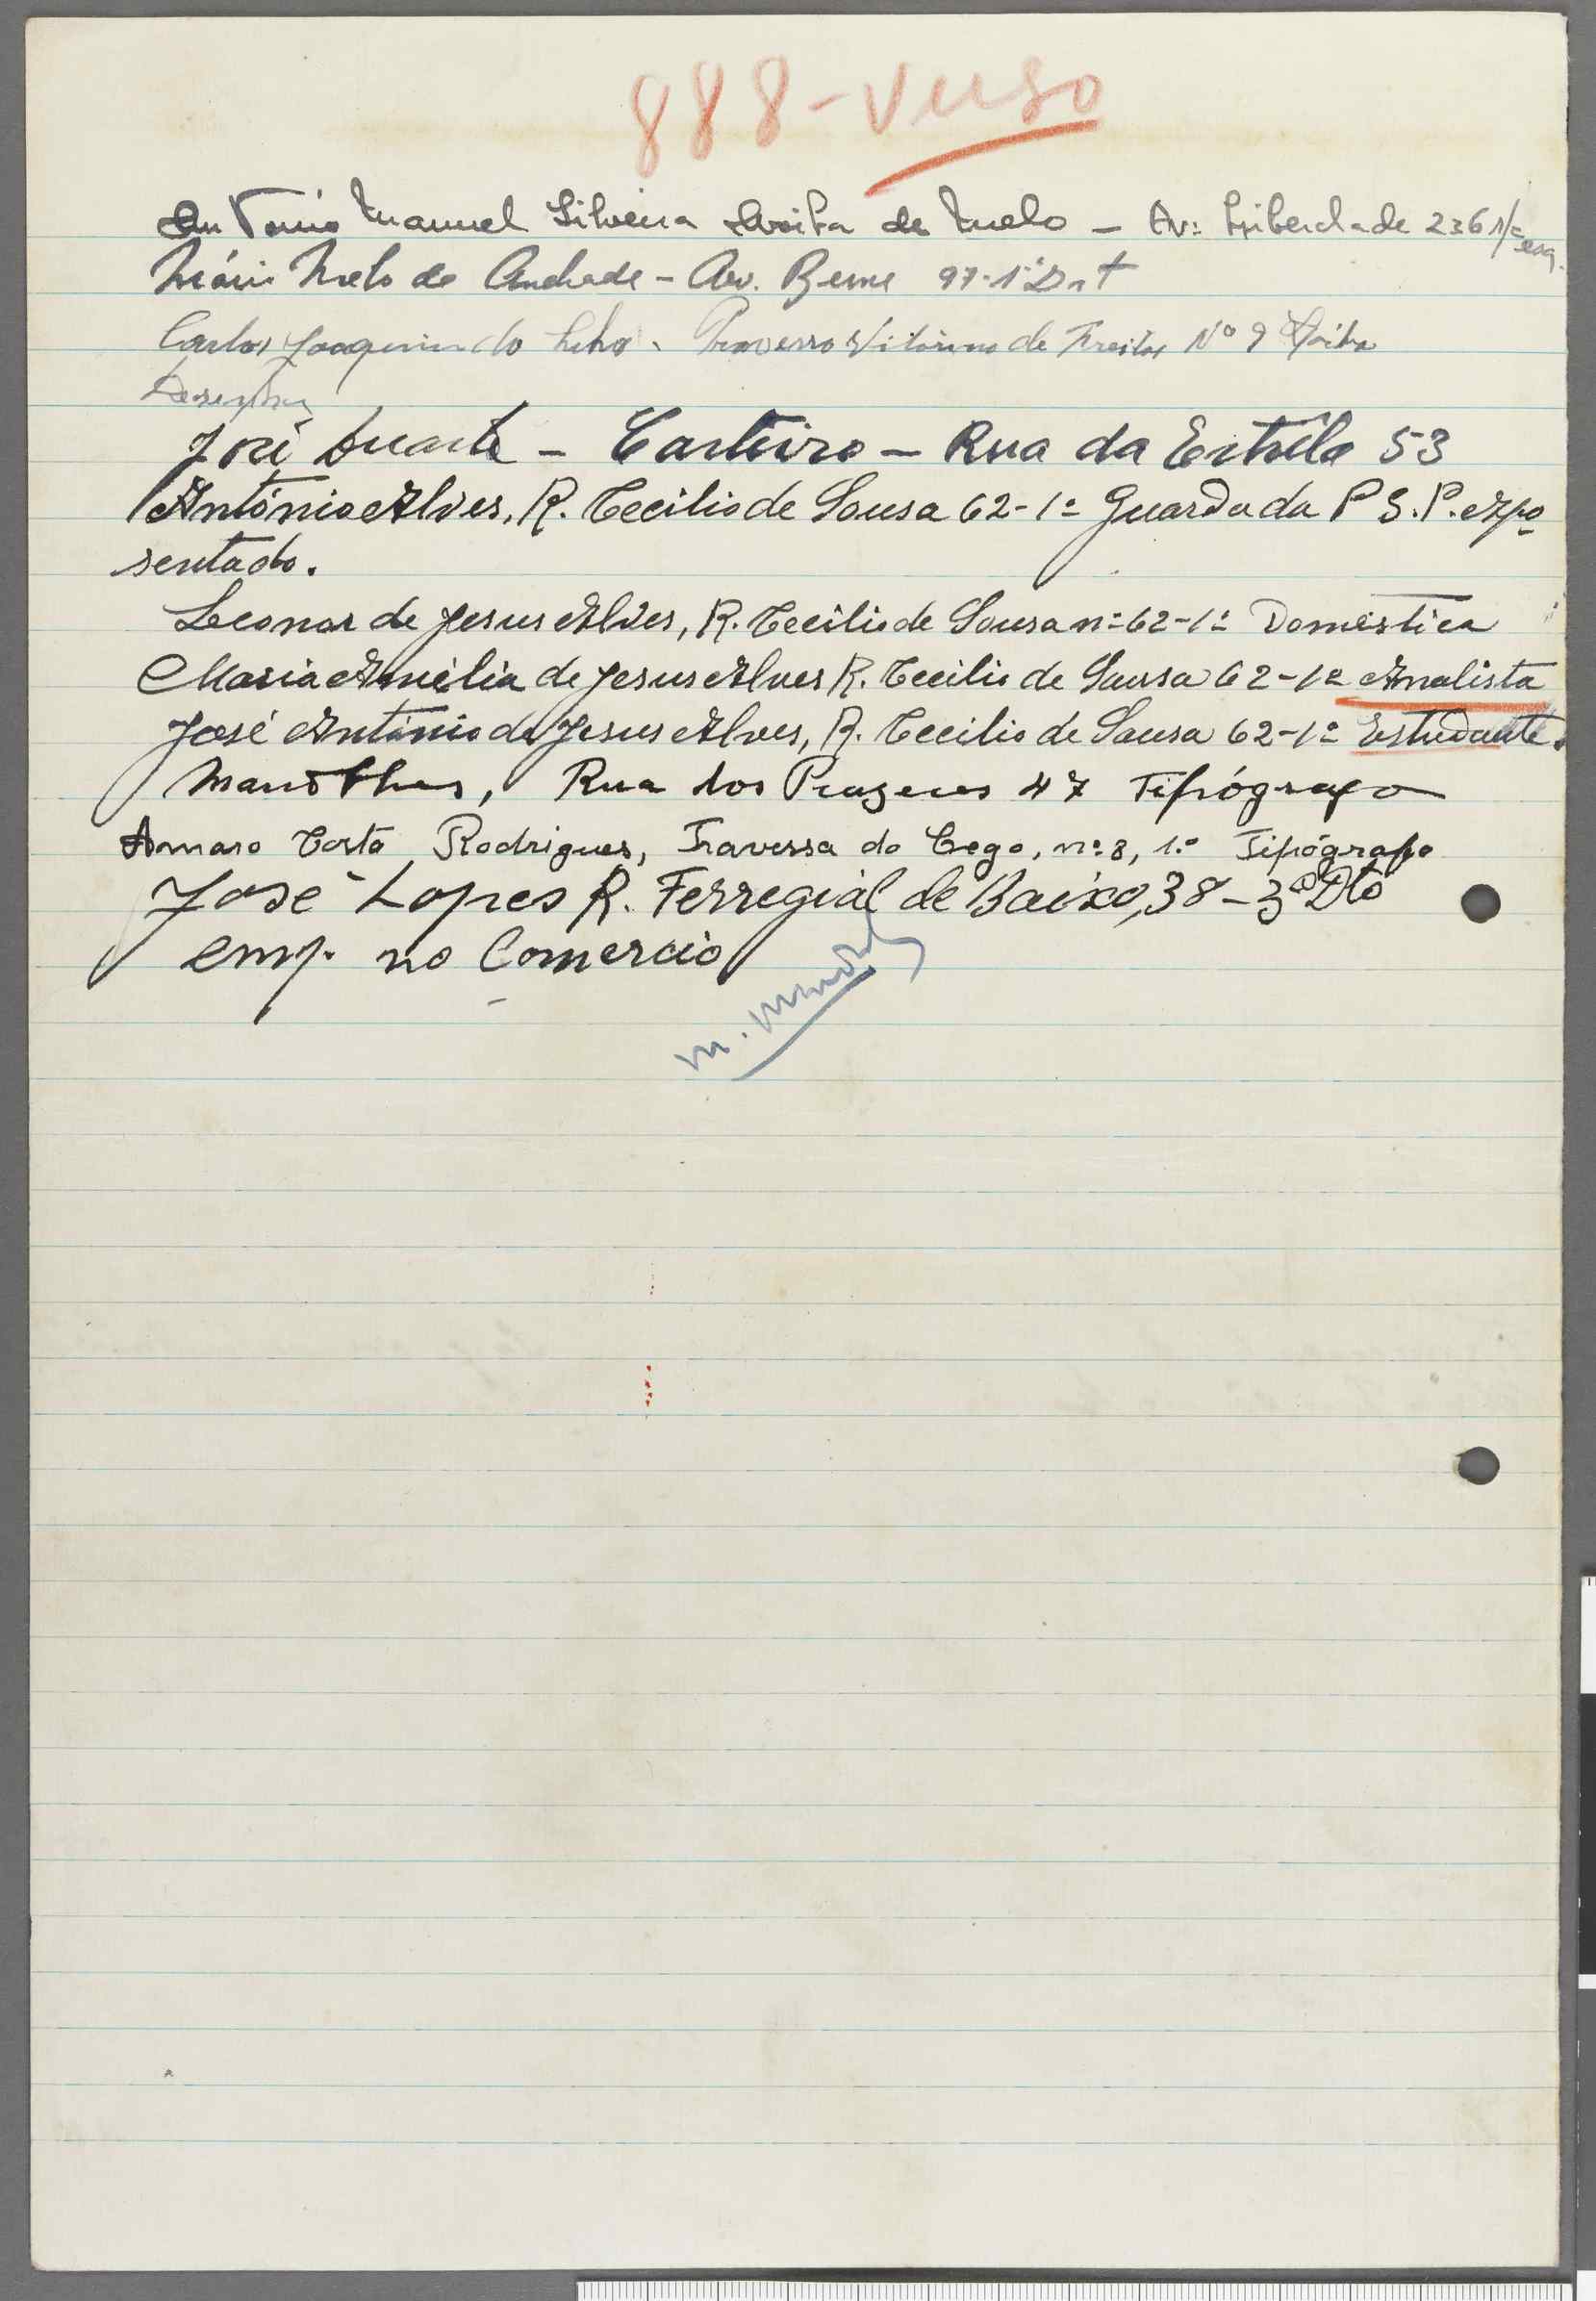 888 - verso
António Manuel Silveira de Melo - Av: Liberdade 236 r/c esq.
Mário Melo de Andrade - Av. Berne 97-1º Drt
Carlos Joaquim do - Travessa Vitorino de Freitas Nº 9
José Duarte - Carteiro - Rua da Estrêla 53
António Alves, R. Cecílio de Sousa 62-1º Guarda da P S.P. Apo
sentado.
Leonor de Jesus Alves, R. Cecílio de Sousa nº 62-1º Doméstica
Maria Amélia de Jesus Alves R. Cecílio de Sousa 62-1º Analista
José António de Jesus Alves, R. Cecílio de Sousa 62-1º Estudante.
Rua dos Prazeres 47 Tipógrafo
Amaro Costa Rodrigues, Travessa do Cego, nº 8, 1.º Tipógrafo
José Lopes R. Ferregial de Baixo, 38-3º Dto
emp. no Comercio